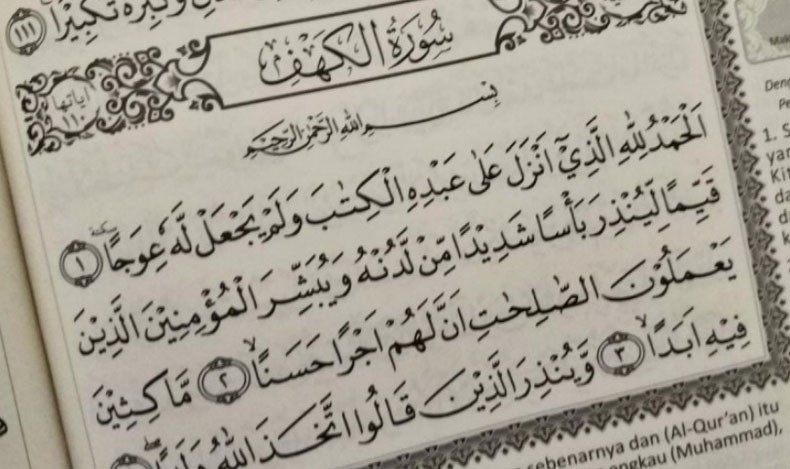 وَكَبِّرْهُ تَكْبِيْرًا ۝١١١
سُوْرَةُ الْكَهْفِ
اٰيَاتُهَا ١١٠
بِسْمِ اللّٰهِ الرَّحْمٰنِ الرَّحِيْمِ
اَلْحَمْدُ لِلّٰهِ الَّذِيْٓ اَنْزَلَ عَلٰى عَبْدِهِ الْكِتٰبَ وَلَمْ يَجْعَلْ لَّهٗ عِوَجًا ۜ ١
قَيِّمًا لِّيُنْذِرَ بَأْسًا شَدِيْدًا مِّنْ لَّدُنْهُ وَيُبَشِّرَ الْمُؤْمِنِيْنَ الَّذِيْنَ
يَعْمَلُوْنَ الصّٰلِحٰتِ اَنَّ لَهُمْ اَجْرًا حَسَنًاۙ ٢ مَّاكِثِيْنَ
فِيْهِ اَبَدًاۙ ٣ وَّيُنْذِرَ الَّذِيْنَ قَالُوا اتَّخَذَ اللّٰهُ وَلَدًا
Mak
Deng
Pe
1. S
yan
Kit
da
sebenarnya dan (Al-Qur'an) itu
engkau (Muhammad),